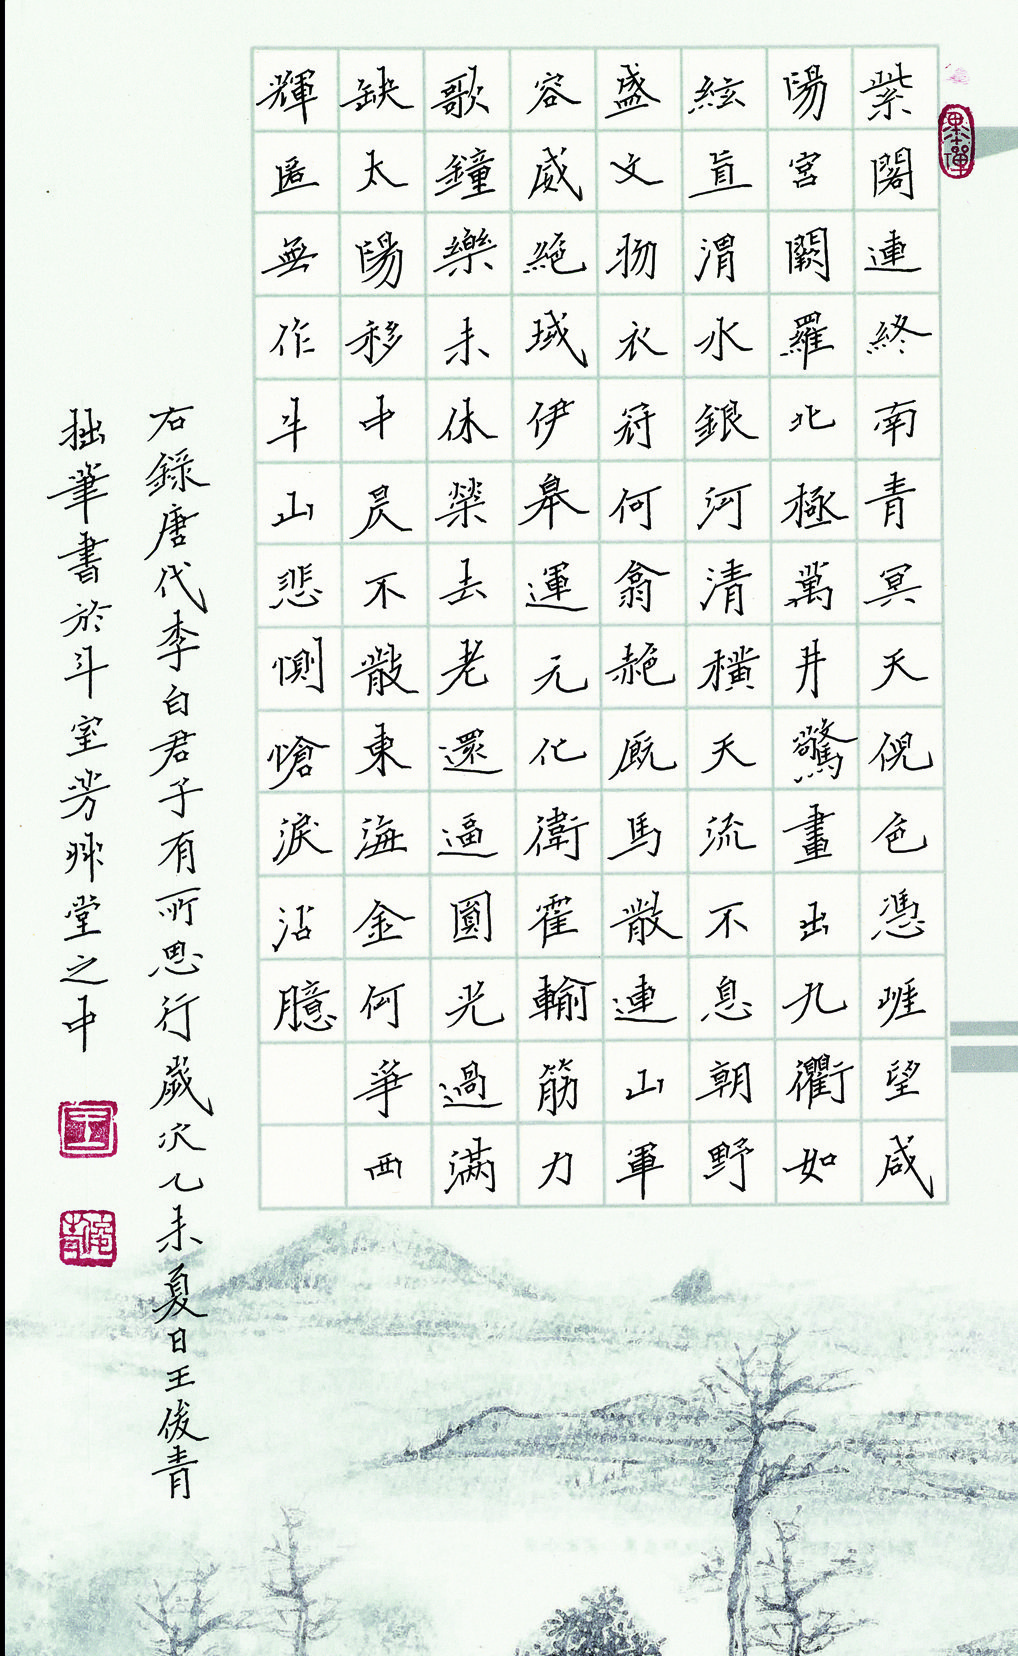 紫閣連終南青冥天倪色憑崕望咸
陽宮闕羅北極萬井驚畫出九衢如
絃直渭水銀河清橫天流不息朝野
盛文物衣冠何翕赩厩馬散連山軍
容威絕域伊皋運元化衛霍輸筋力
歌鐘樂未休榮去老還逼圓光過滿
缺太陽移中昃不散東海金何爭西
輝匿無作牛山悲惻愴淚沾臆
右錄唐代李白君子有所思行歲次乙未夏日王俊青
拙筆書於斗室芳
堂之中
墨禪